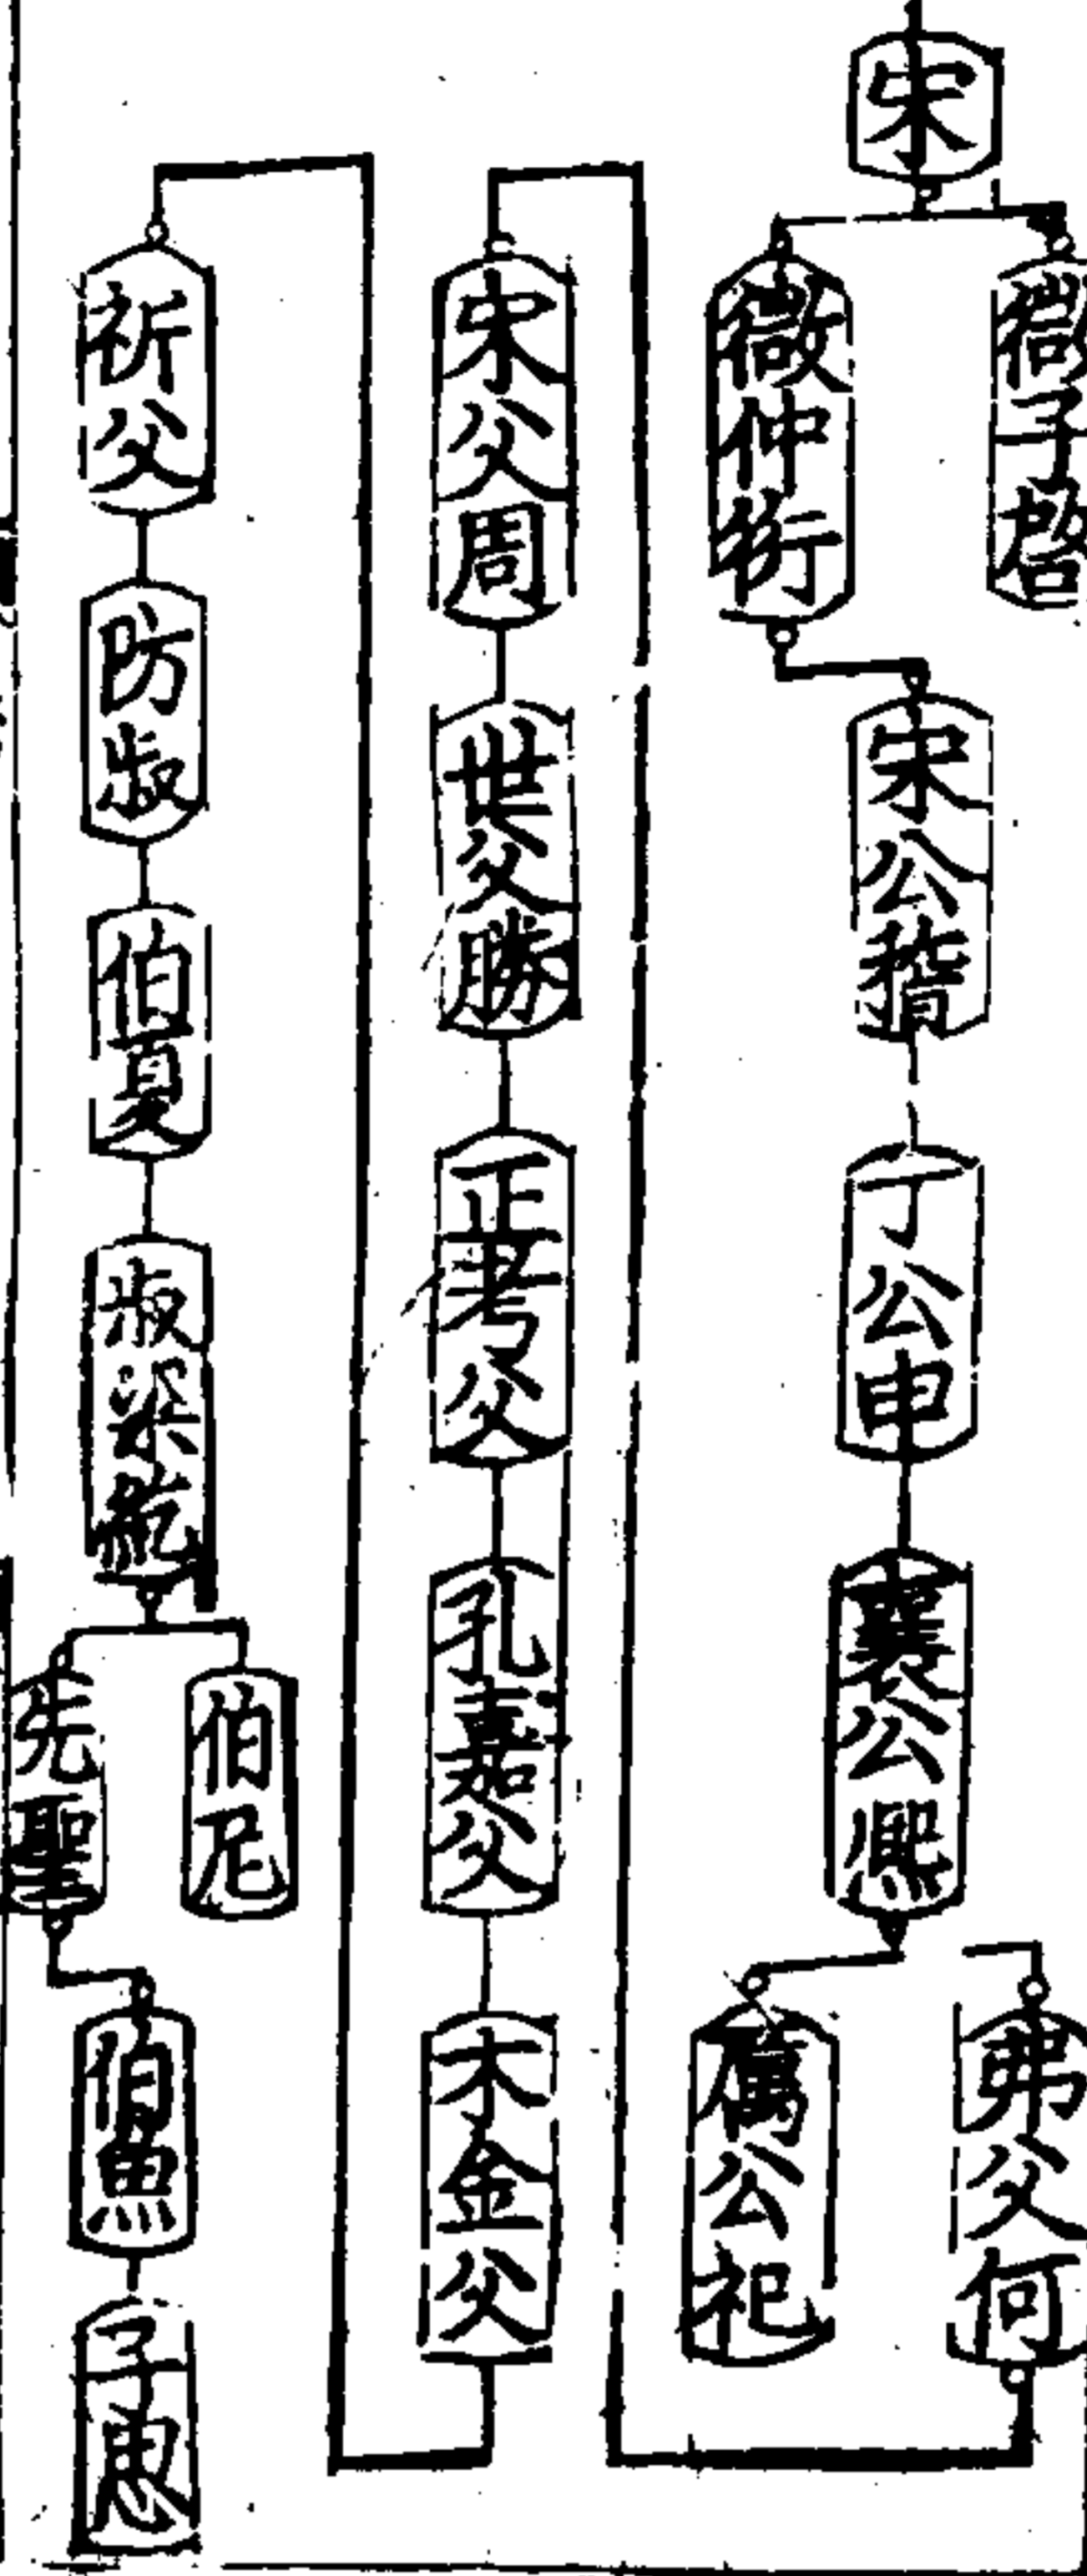 宋
微子啓
微仲衍
宋公稽
丁公申
襄公熙
弗父何
厲公祀
宋父周
世父勝
正考父
孔嘉父
木金父
祈父
防叔
伯夏
叔梁紇
伯尼
先聖
伯魚
子思